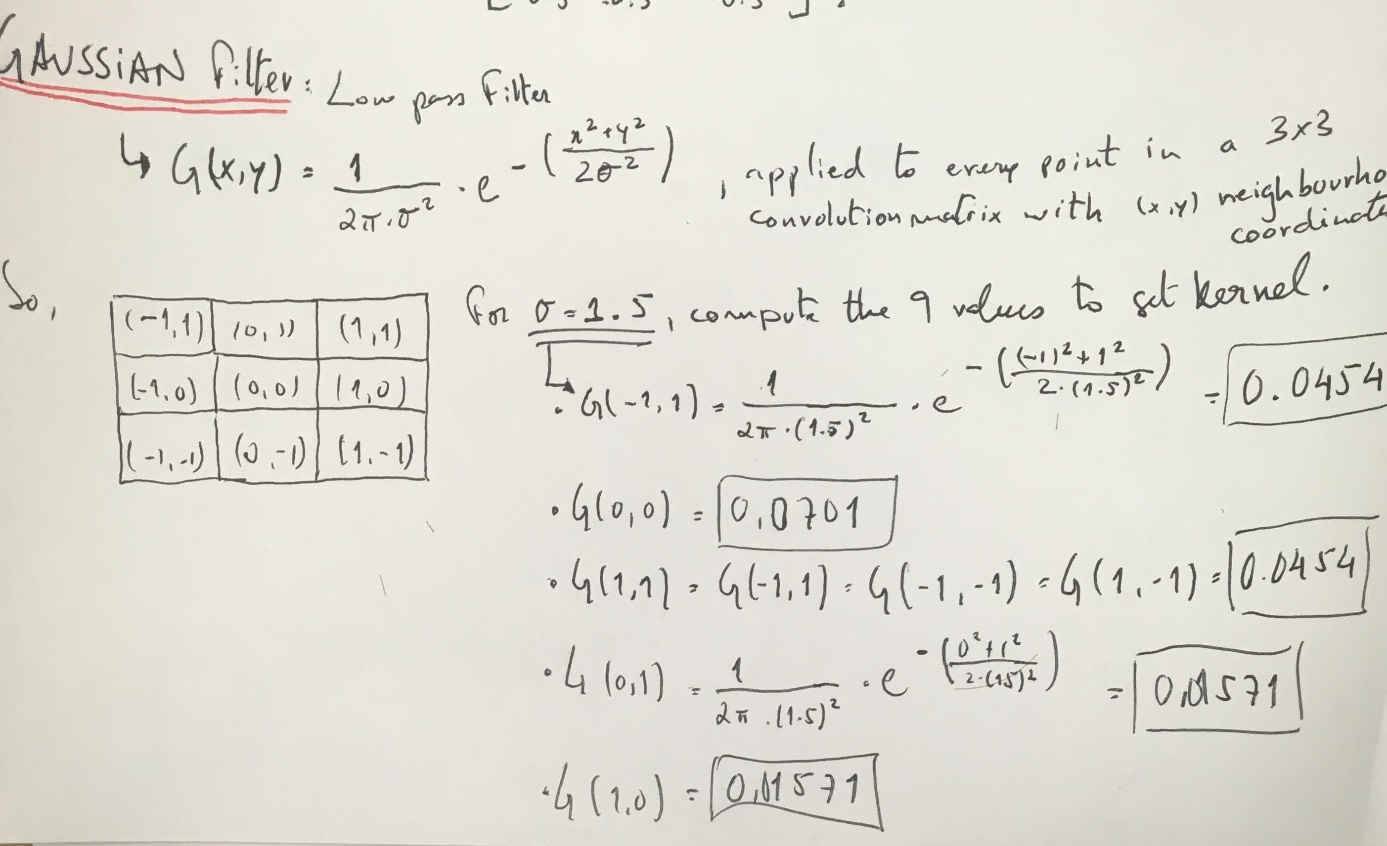 GAUSSIAN filter: Low pass Filter
↳ G(x,y) = 1/(2π.σ²) · e^-((x²+y²)/(2σ²)) , applied to every point in a 3x3
convolution matrix with (x,y) neighbourho
coordinat
So,
(-1,1) (0,1) (1,1)
(-1,0) (0,0) (1,0)
(-1,-1) (0,-1) (1,-1)
for σ=1.5, compute the 9 values to get kernel.
· G(-1,1) = 1/(2π·(1.5)²) · e^-(((-1)²+1²)/(2·(1.5)²)) = 0.0454
· G(0,0) = 0,0701
· G(1,1) = G(-1,1) = G(-1,-1) = G(1,-1) = 0.0454
· G(0,1) = 1/(2π.(1.5)²) · e^-((0²+1²)/(2·(1.5)²)) =
· G(1,0) =